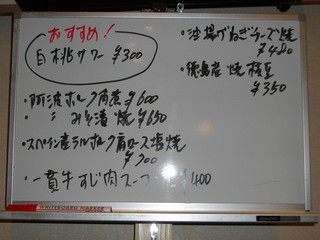 おすすめ!
白桃サワー ¥300
・阿波ポーク角煮 ¥600
・〃 みそ漬焼 ¥650
・スペイン産ラルポルク肩ロース塩焼
¥700
・一貫牛すじ肉スープ 400
・油揚げねぎチーズ焼
¥480
・徳島産 焼枝豆
¥350
WHITEBOARD MARKER